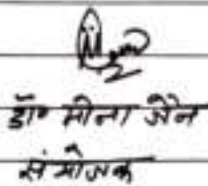 डॉ॰ मीना जैन
संयोजक